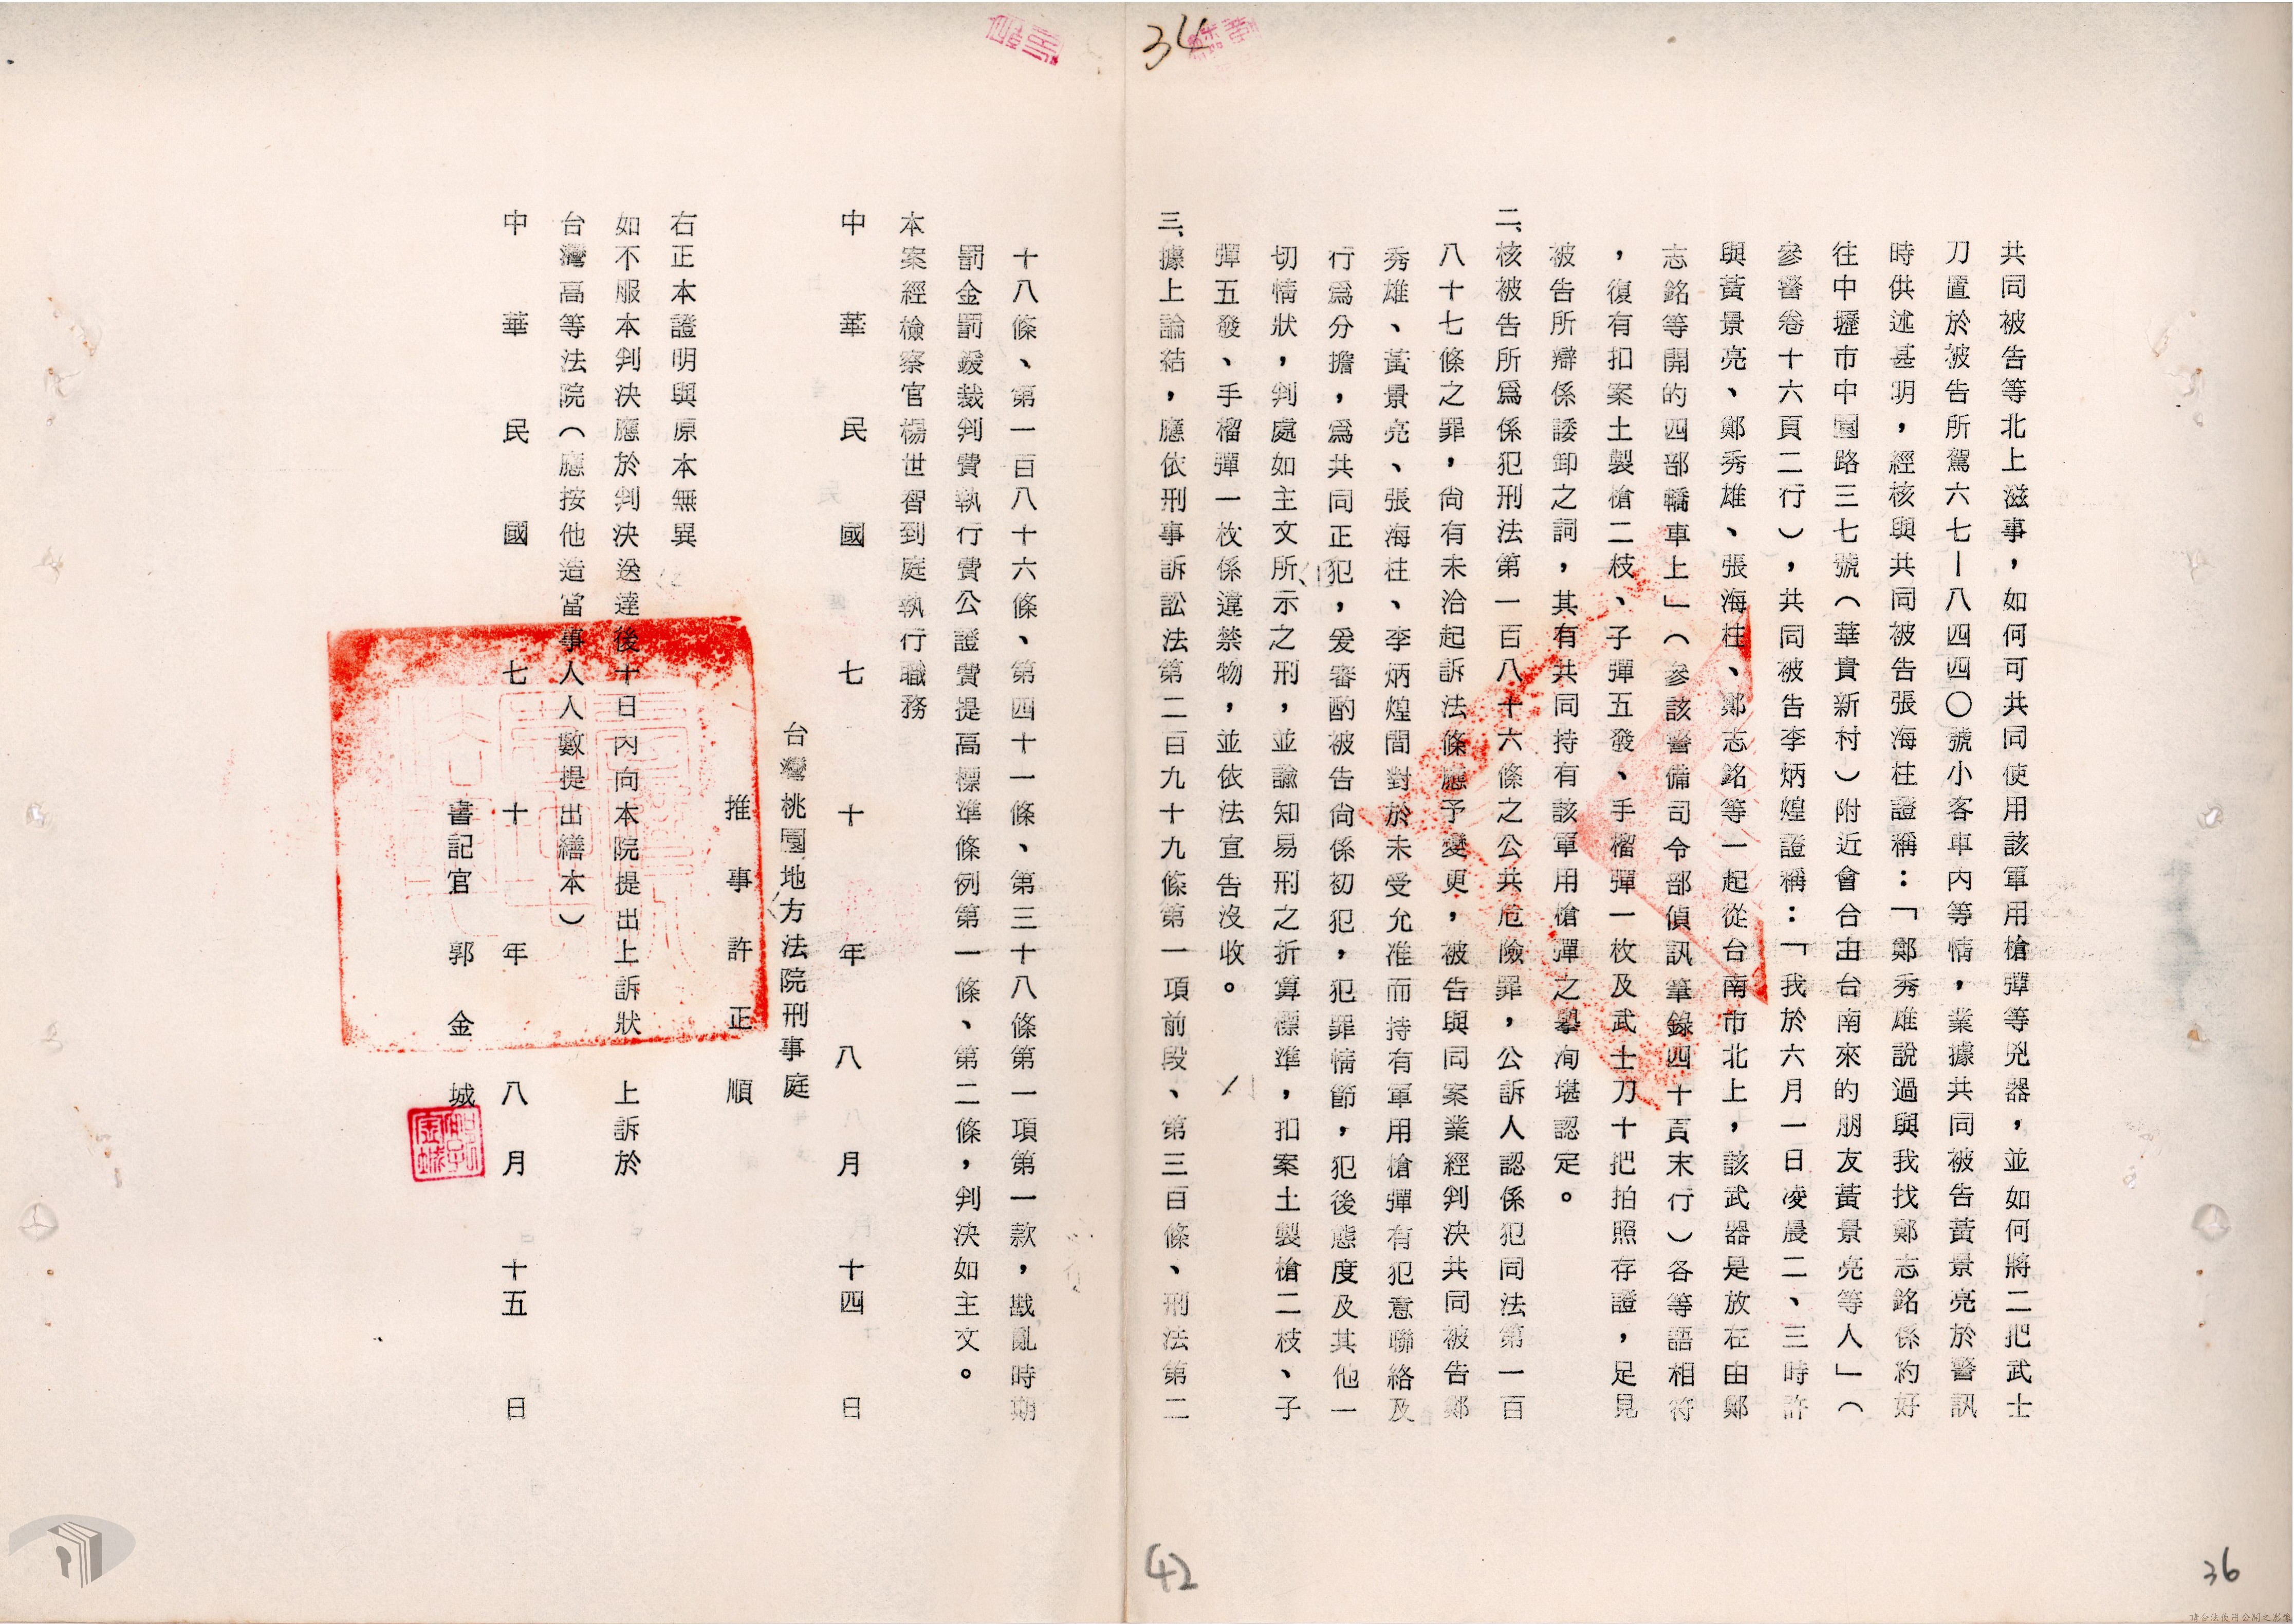 34
共同被告等北上滋事，如何可共同使用該軍用槍彈等兇器，並如何將二把武士
刀置於被告所駕六七—八四四〇號小客車內等情，業據共同被告黃景亮於警訊
時供述甚明，經核與共同被告張海柱證稱：「鄭秀雄說過與我找鄭志銘係約好
往中壢市中園路三七號（華貴新村）附近會合由台南來的朋友黃景亮等人」（
參警卷十六頁二行），共同被告李炳煌證稱：「我於六月一日凌晨二、三時許
與黃景亮、鄭秀雄、張海柱、鄭志銘等一起從台南市北上，該武器是放在由鄭
志銘等開的四部轎車上」（參該警備司令部偵訊筆錄四十頁末行）各等語相符
，復有扣案土製槍二枝、子彈五發、手榴彈一枚及武士刀十把拍照存證，足見
被告所辯係諉卸之詞，其有共同持有該軍用槍彈之舉洵堪認定。
二、核被告所爲係犯刑法第一百八十六條之公共危險罪，公訴人認係犯同法第一百
八十七條之罪，尙有未洽起訴法條應予變更，被告與同案業經判決共同被告鄭
秀雄、黃景亮、張海柱、李炳煌間對於未受允准而持有軍用槍彈有犯意聯絡及
行爲分擔，爲共同正犯，爰審酌被告尙係初犯，犯罪情節，犯後態度及其他一
切情狀，判處如主文所示之刑，並諭知易刑之折算標準，扣案土製槍二枝、子
彈五發、手榴彈一枚係違禁物，並依法宣告沒收。
三、據上論結，應依刑事訴訟法第二百九十九條第一項前段、第三百條、刑法第二
十八條、第一百八十六條、第四十一條、第三十八條第一項第一款，戡亂時期
罰金罰鍰裁判費執行費公證費提高標準條例第一條、第二條，判決如主文。
本案經檢察官楊世智到庭執行職務
中華民國七十年八月十四日
台灣桃園地方法院刑事庭
推事許正順
右正本證明與原本無異
如不服本判決應於判決送達後十日內向本院提出上訴狀　上訴於
台灣高等法院（應按他造當事人人數提出繕本）
中華民國七十年八月十五日
書記官郭金城
42
36
請合法使用公開之影像